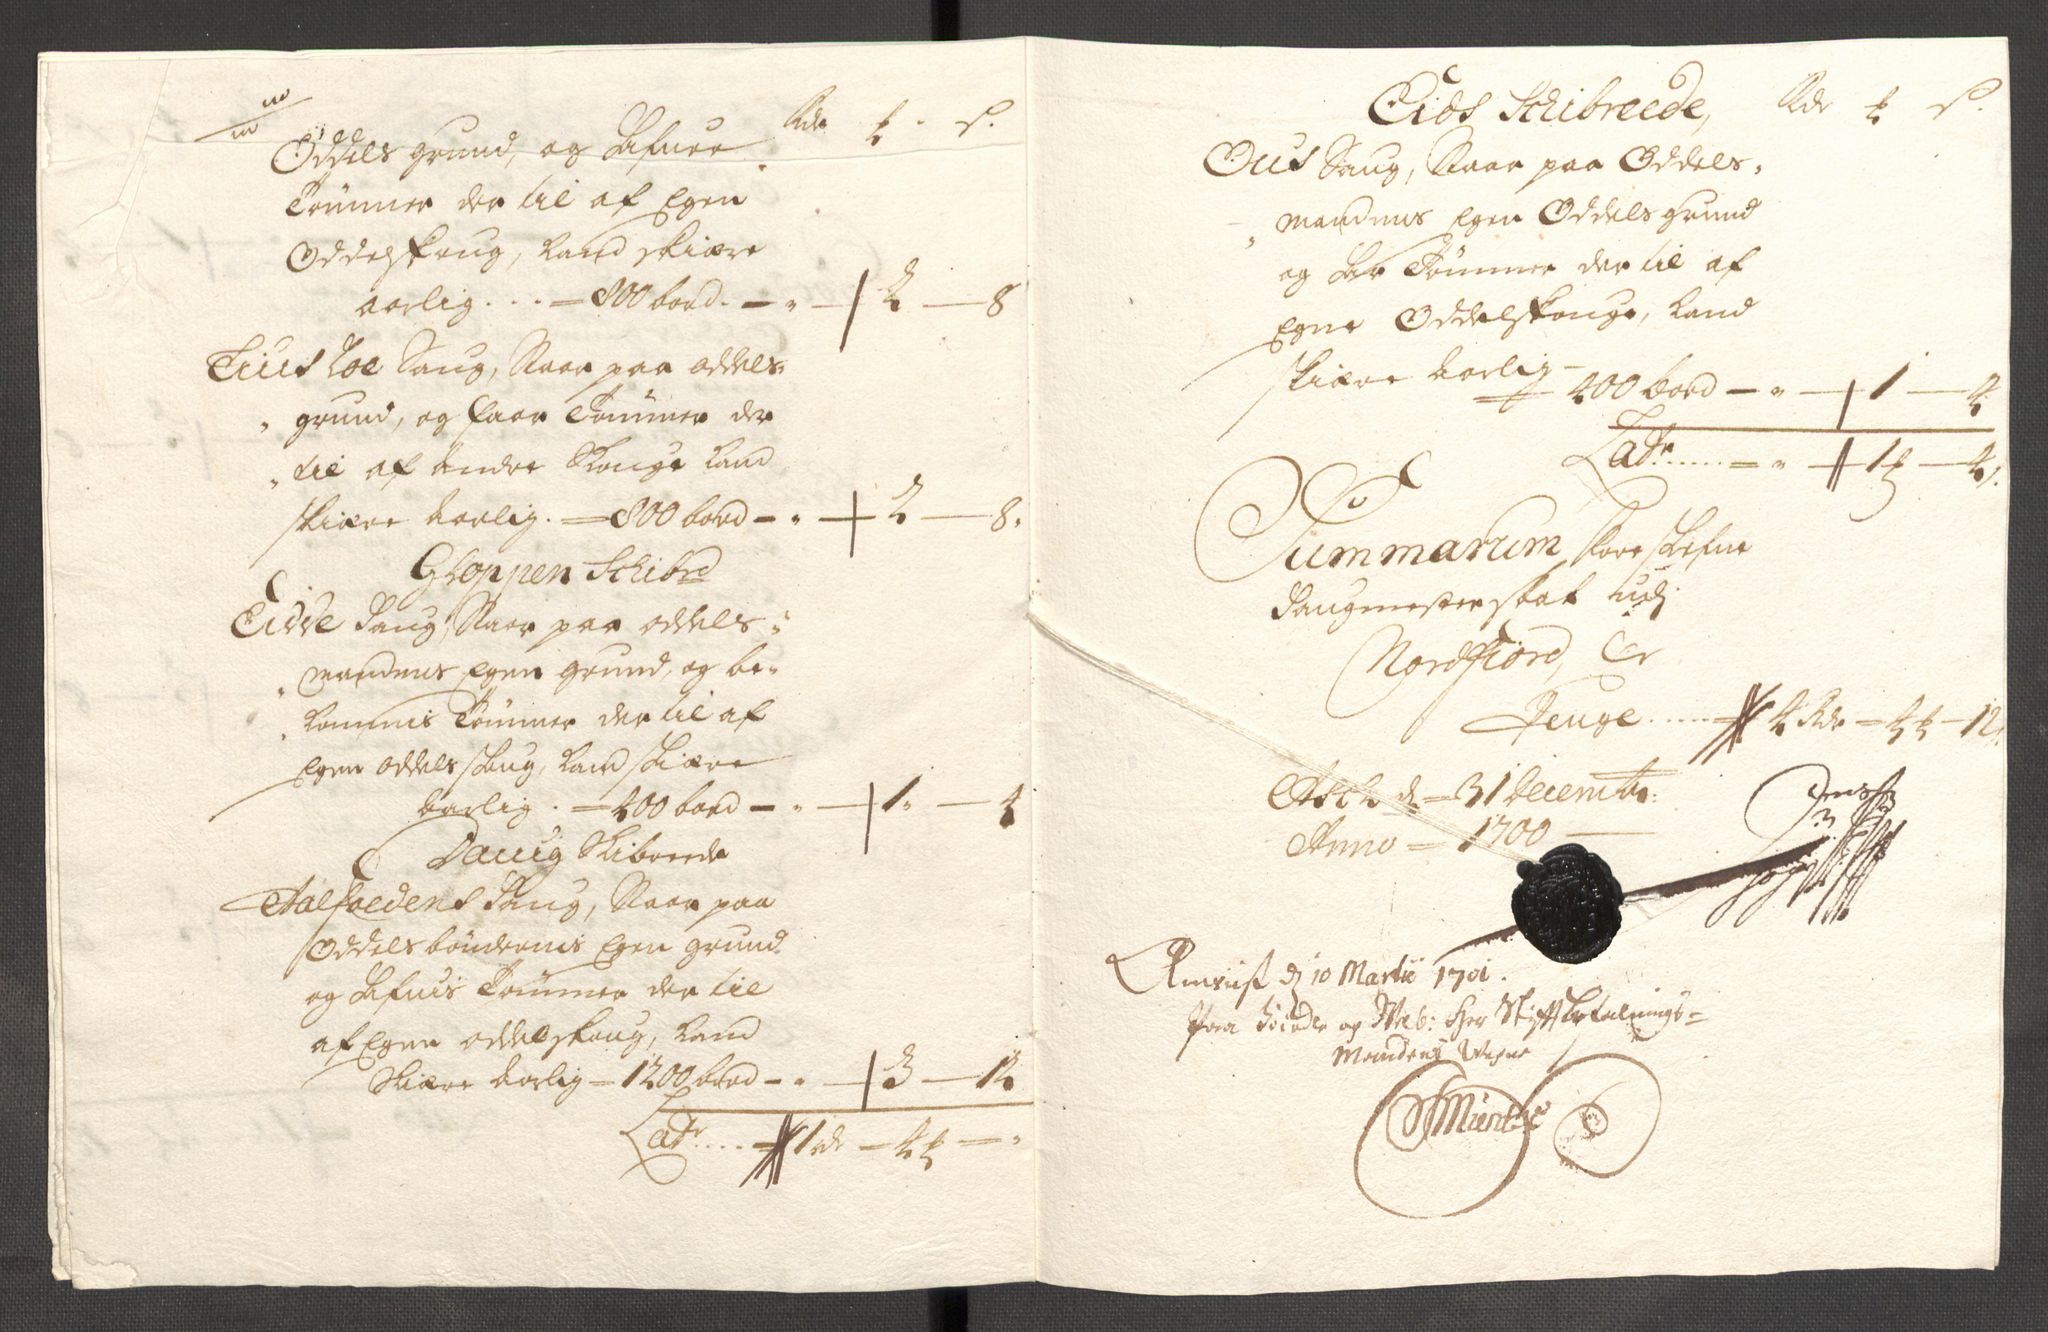 Rdr ß.
Oddels grund, og
Tømmer der til af Egen
Oddelskoug, kand skiære
aarlig . . . = 800 bord. — " — 2 — 8
Saug, Staar paa oddels-
grund, og faar Tømmer der
til af andre Skouge kand
skiære aarlig. = 800 bord — " — 2 — 8.
Gloppen Schibrd
Eide Saug, Staar paa oddels-
mandens Egen grund, og be-
kommis Tømmer der til af
Egen oddels skoug, kand skiære
aarlig . = 400 bord — " — 1 " — 4
Dauig Skibrede
Aalfoedens Saug, Staar paa
Oddels bøndernis Egen grund
og Tømmer der til
af Egen oddelskoug, kand
Skiære aarlig = 1200 bord — " — 3 — 12
Latr ..... 1 rdr = 4 = "
Eids Schibreede, Rdr ß.
Ous Saug, Staar paa Oddels-
mandens Egen Oddels grund
og Tømmer der til af
Egne Oddelskouge, kand
skiære aarlig —
= 400 bord — " — 1 — 4
Latr ..... = " — 1 — 4.
Summarum foreskrefne
Saugmester skat udj
Nordfiord, Er
Penge ..... 4 Rdr = 4 — 12.
d = 31 Decembr:
Anno = 1700 —
d 10 Martii 1701.
Paa og Welb: Her Stiftbefalings-
Mandens Wegne